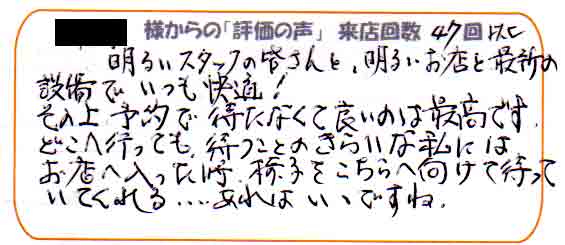 様からの「評価の声」 来店回数 47回以上
明るいスタッフの皆さんと、明るいお店と最新の
設備でいつも快適!
その上、予約で待たなくて良いのは最高です。
どこへ行っても、待つことのきらいな私には
お店へ入った時、椅子をこちらへ向けて待って
いてくれる....あれはいいですね。